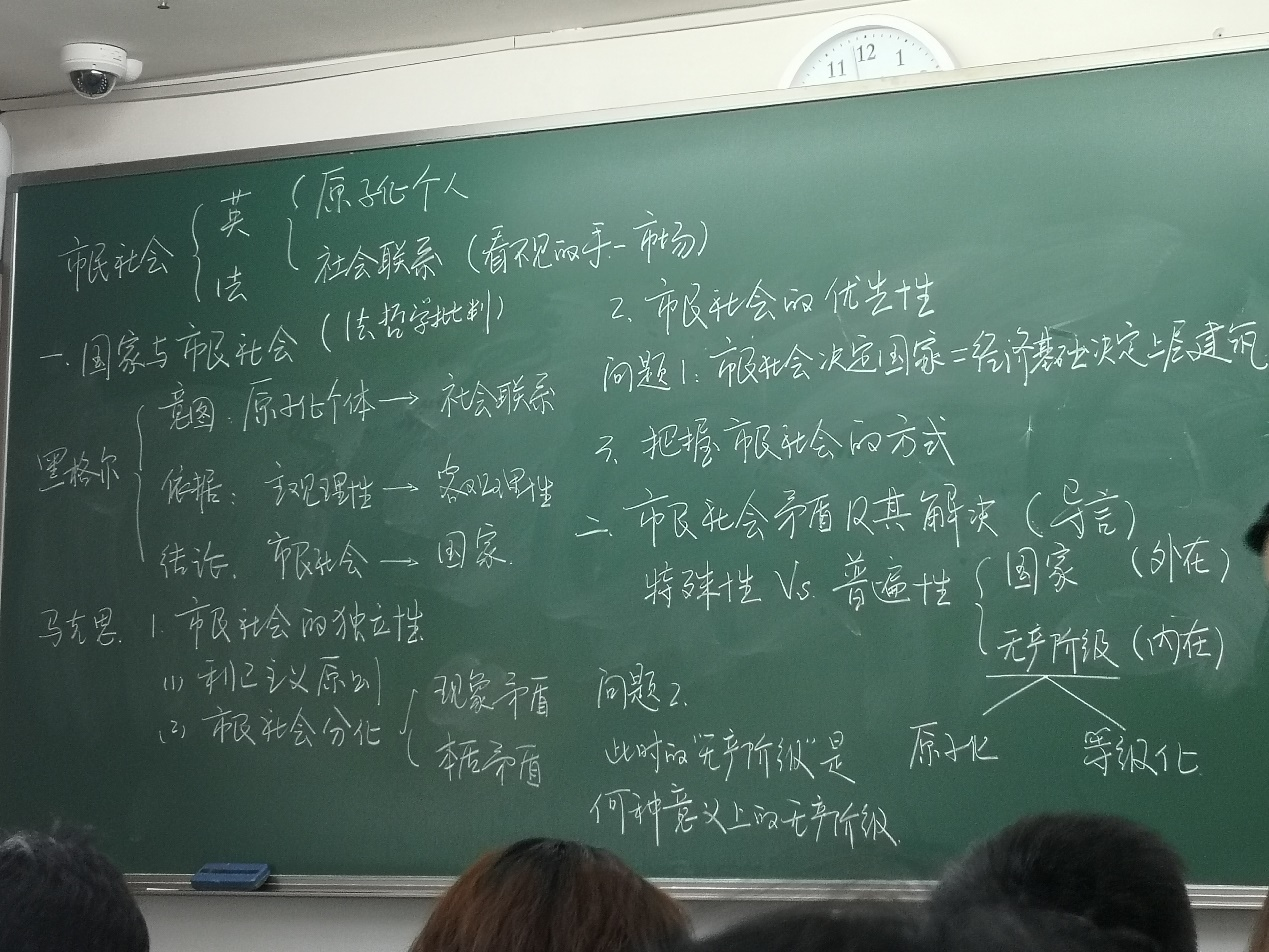 11 12 1
市民社会 { 英 { 原子化个人
法 社会联系 (看不见的手-市场)
一. 国家与市民社会 (法哲学批判)
黑格尔 { 意图: 原子化个体 → 社会联系
依据: 主观理性 → 客观理性
结论. 市民社会 → 国家.
马克思. 1. 市民社会的独立性
(1) 利己主义原则
(2) 市民社会分化 { 现象矛盾
本质矛盾
2. 市民社会的优先性
问题1: 市民社会决定国家=经济基础决定上层建筑
3. 把握市民社会的方式
二. 市民社会矛盾及其解决 (导言)
特殊性 Vs. 普遍性 { 国家 (外在)
无产阶级 (内在)
原子化 等级化
问题2.
此时的"无产阶级"是
何种意义上的无产阶级.